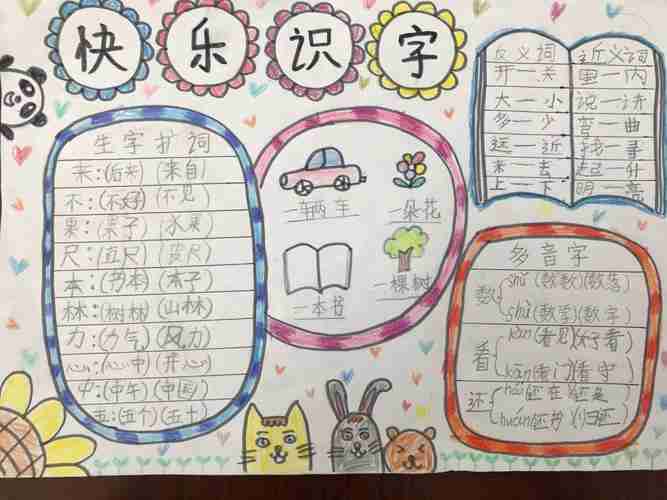 快乐识字
生字扩词
来:(后来)(来自)
不:(不好)(不见)
果:(果子)(水果)
尺:(直尺)(皮尺)
本:(书本)(本子)
林:(树林)(山林)
力:(力气)(风力)
心:(心中)(开心)
中:(中午)(中国)
五:(五个)(五十)
一辆车
一朵花
一本书
一棵树
反义词
开一关
大一小
多一少
远一近
来一去
上一下
近义词
里一内
说一讲
弯一曲
找一寻
起一升
明一亮
多音字
数
shǔ(数数)(数落)
shù(数学)(数字)
看
kàn(看见)(看)
kān(看门)(看守)
还
hái(还在)(还是)
huán(还书)(归还)